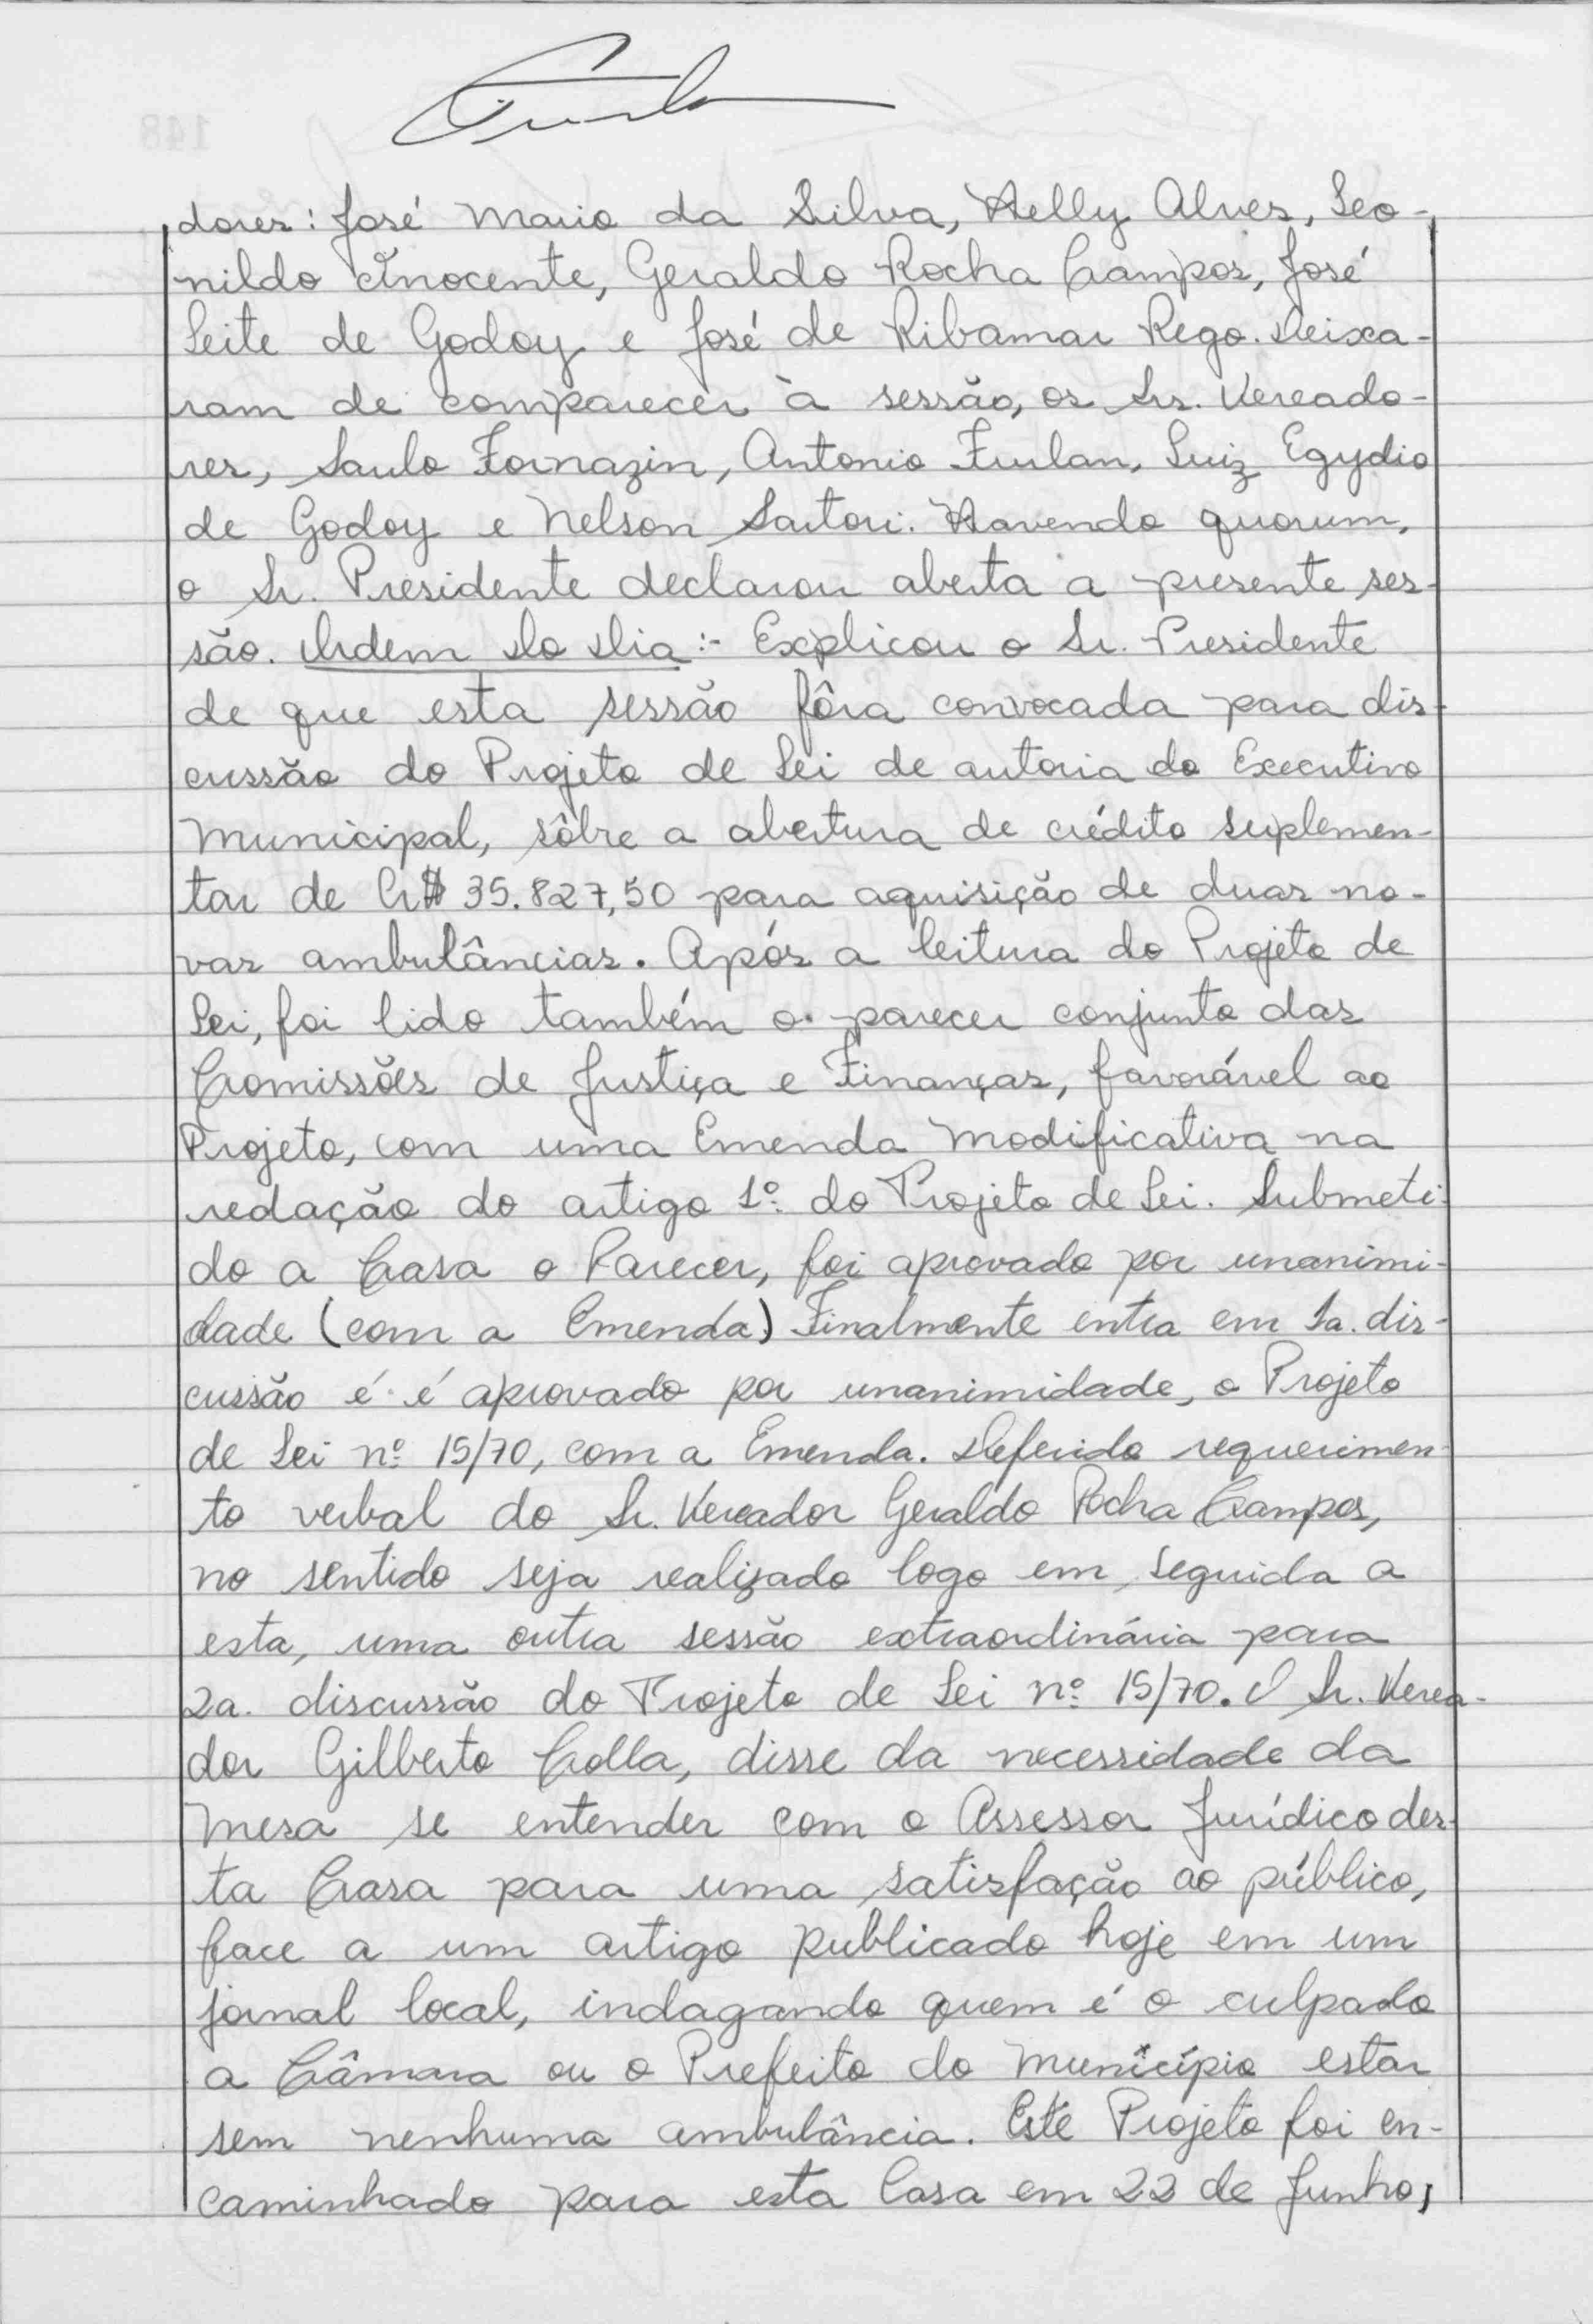 dores: José Maria da Silva, Helly Alves, Leo-
nildo Inocente, Geraldo Rocha Campos, José
Leite de Godoy e José de Ribamar Rego. Deixa-
ram de comparecer à sessão, os Srs. Vereado-
res, Saulo Fornazin, Antonio Furlan, Luiz Egydio
de Godoy e Nelson Sartori. Havendo quorum,
o Sr. Presidente declarou aberta a presente ses-
são. Ordem do Dia :- Explicou o Sr. Presidente
de que esta sessão fôra convocada para dis-
cussão do Projeto de Lei de autoria do Executivo
Municipal, sôbre a abertura de crédito suplemen-
tar de Cr$ 35.827,50 para aquisição de duas no-
vas ambulâncias. Após a leitura do Projeto de
Lei, foi lido também o parecer conjunto das
Comissões de Justiça e Finanças, favorável ao
Projeto, com uma Emenda Modificativa na
redação do artigo 1º do Projeto de Lei. Submeti-
do a Casa o Parecer, foi aprovado por unanimi-
dade (com a Emenda) Finalmente entra em 1a. dis-
cussão é é aprovado por unanimidade, o Projeto
de Lei nº 15/70, com a Emenda. Deferido requerimen-
to verbal do Sr. Vereador Geraldo Rocha Campos,
no sentido seja realizado logo em seguida a
esta, uma outra sessão extraordinária para
2a. discussão do Projeto de Lei nº 15/70. O Sr. Verea-
dor Gilberto Colla, disse da necessidade da
Mesa se entender com o Assessor Jurídico des-
ta Casa para uma satisfação ao público,
face a um artigo publicado hoje em um
jornal local, indagando quem é o culpado
a Câmara ou o Prefeito do Município estar
sem nenhuma ambulância. Este Projeto foi en-
caminhado para esta Casa em 22 de Junho,